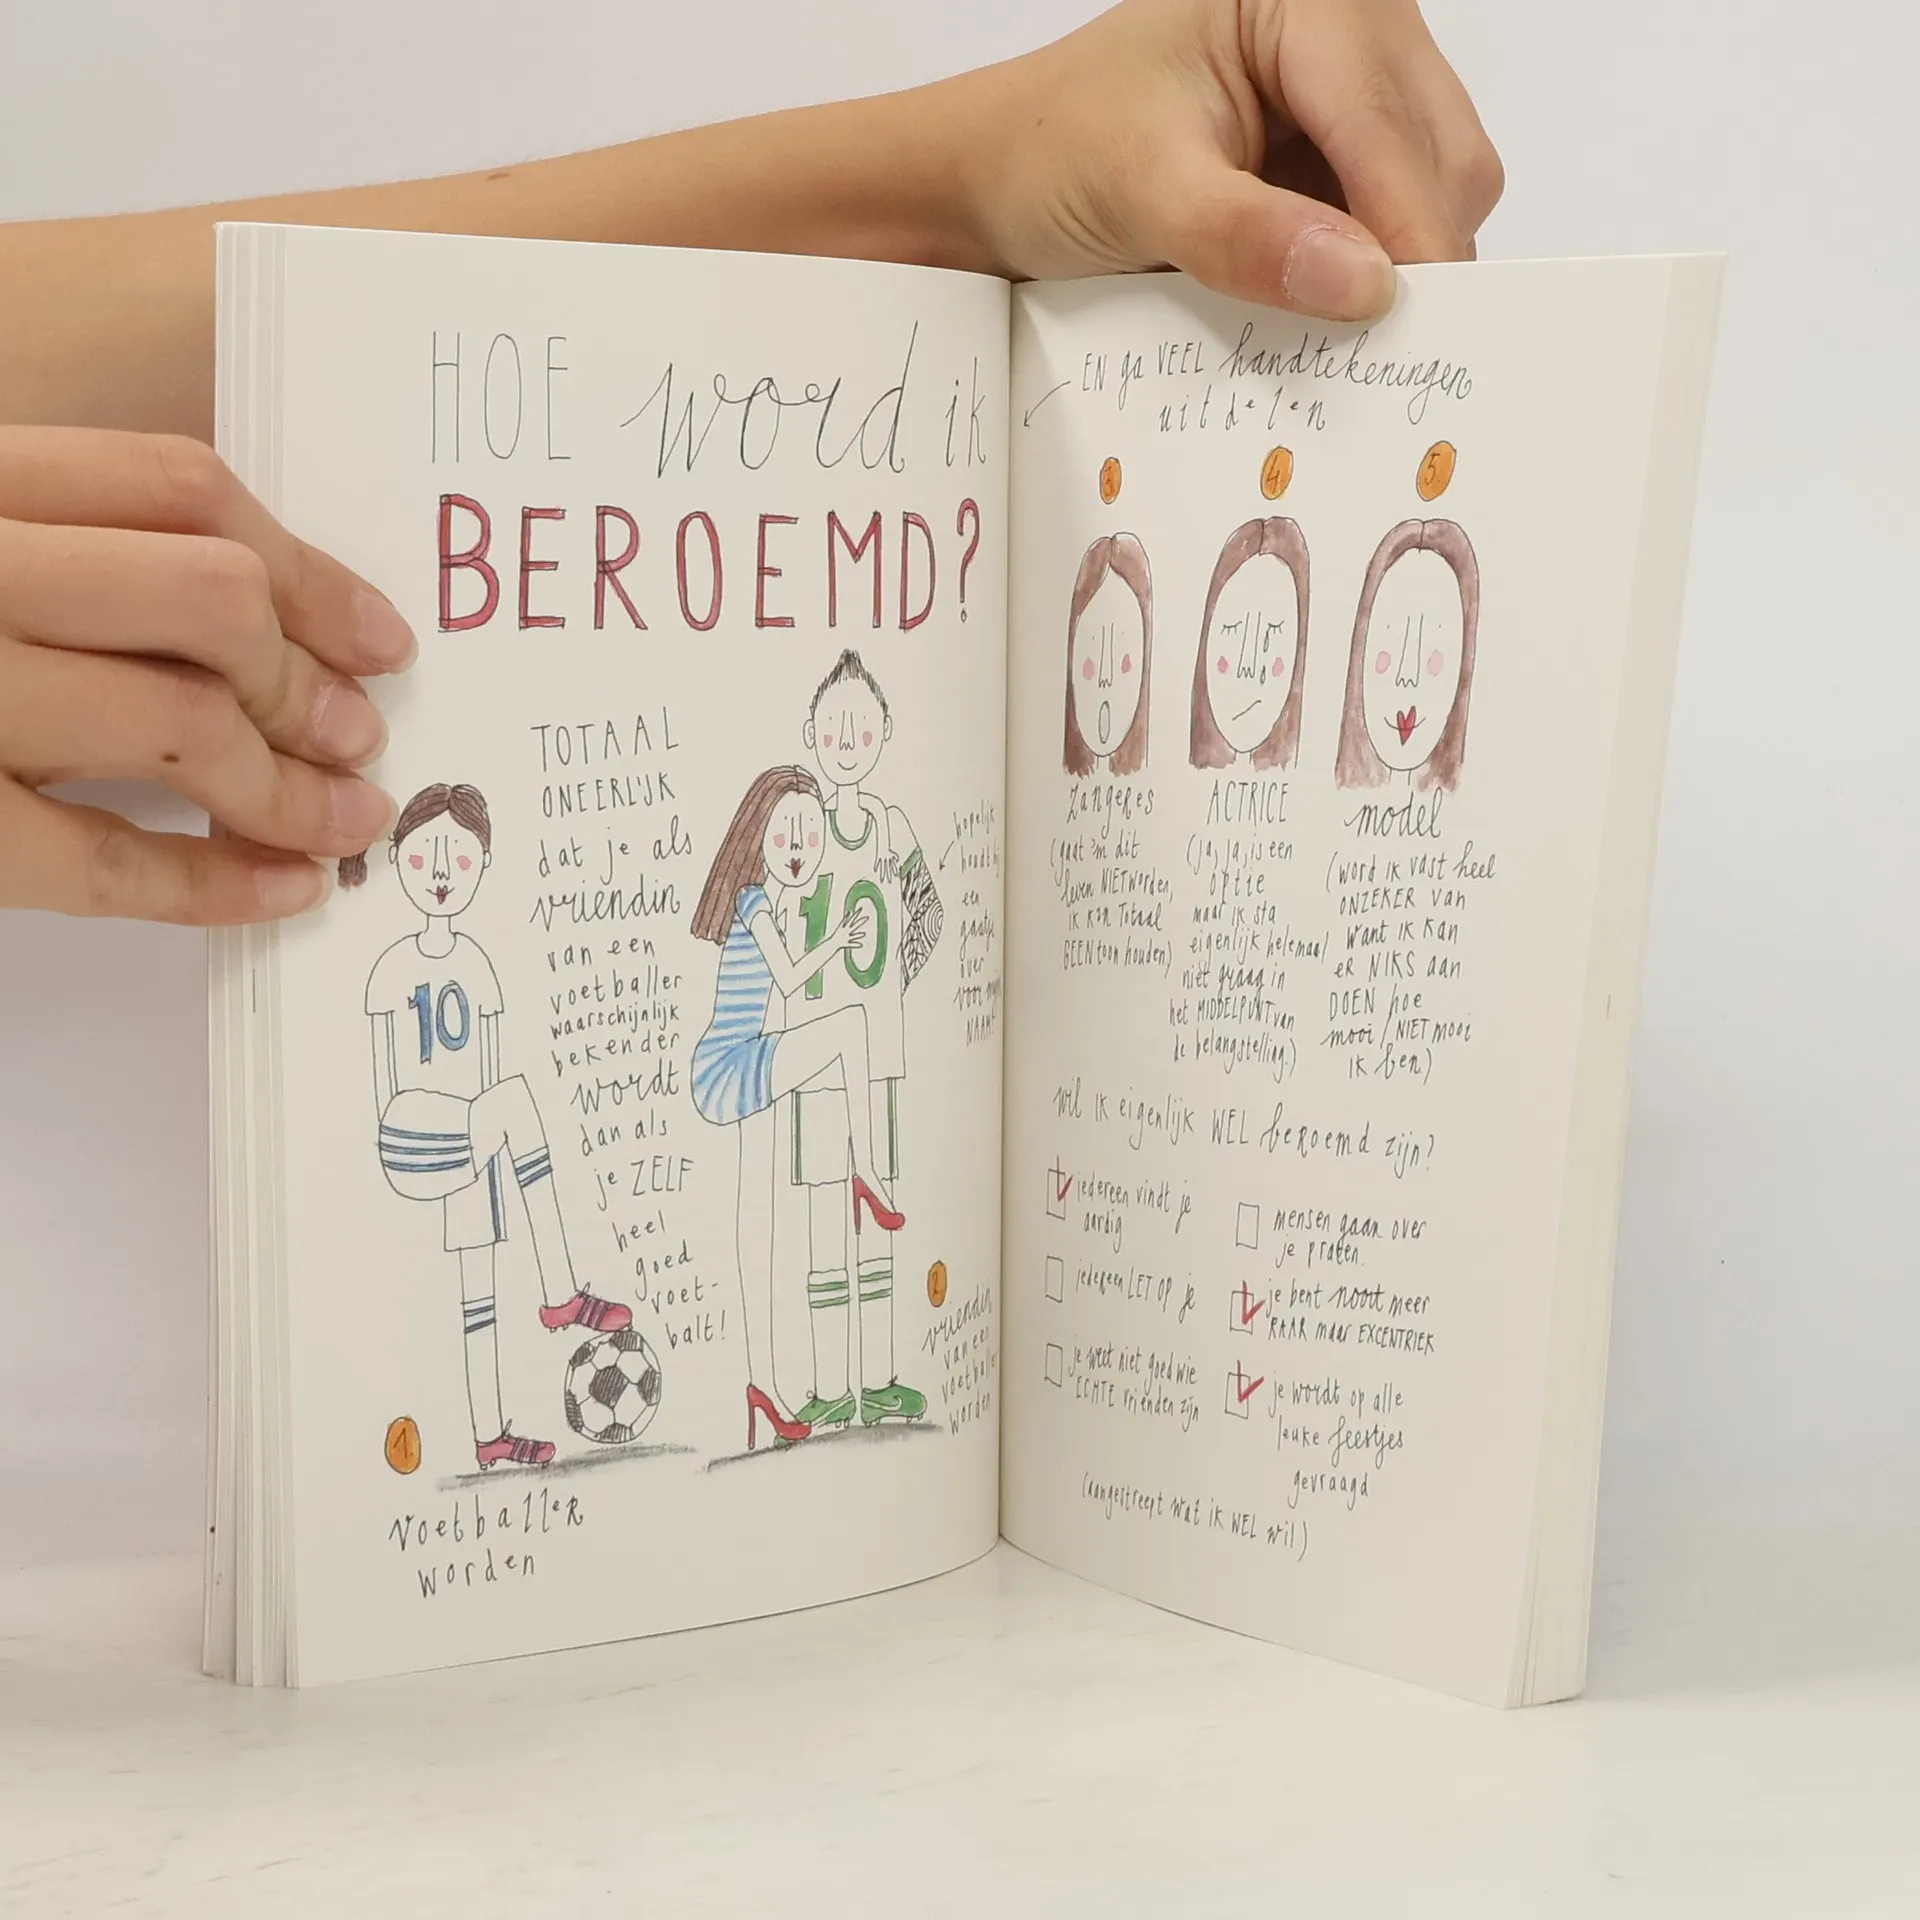 HOE word ik
BEROEMD?
TOTAAL
ONEERLIJK
dat je als
vriendin
van een
voetballer
waarschijnlijk
bekender
wordt
dan als
je ZELF
heel
goed
voet-
balt!
hopelijk
houdt hij
een
gaatje
over
voor mijn
NAAM!
1.
voetballer
worden
2
vriendin
van een
voetballer
worden
EN ga VEEL handtekeningen
uitdelen
3.
zangeres
(gaat 'm dit
leven NIET worden,
ik kan Totaal
GEEN toon houden)
4.
ACTRICE
(ja, ja, is een
optie
maar ik sta
eigenlijk helemaal
niet graag in
het MIDDELPUNT van
de belangstelling.)
5.
model
(word ik vast heel
ONZEKER van
want ik kan
er NIKS aan
DOEN hoe
mooi / NIET mooi
ik ben.)
wil ik eigenlijk WEL beroemd zijn?
iedereen vindt je
aardig
iedereen LET OP je
je weet niet goed wie
ECHTE vrienden zijn
mensen gaan over
je praten.
je bent nooit meer
RAAR maar EXCENTRIEK
je wordt op alle
leuke feestjes
gevraagd
(aangestreept wat ik WEL wil)